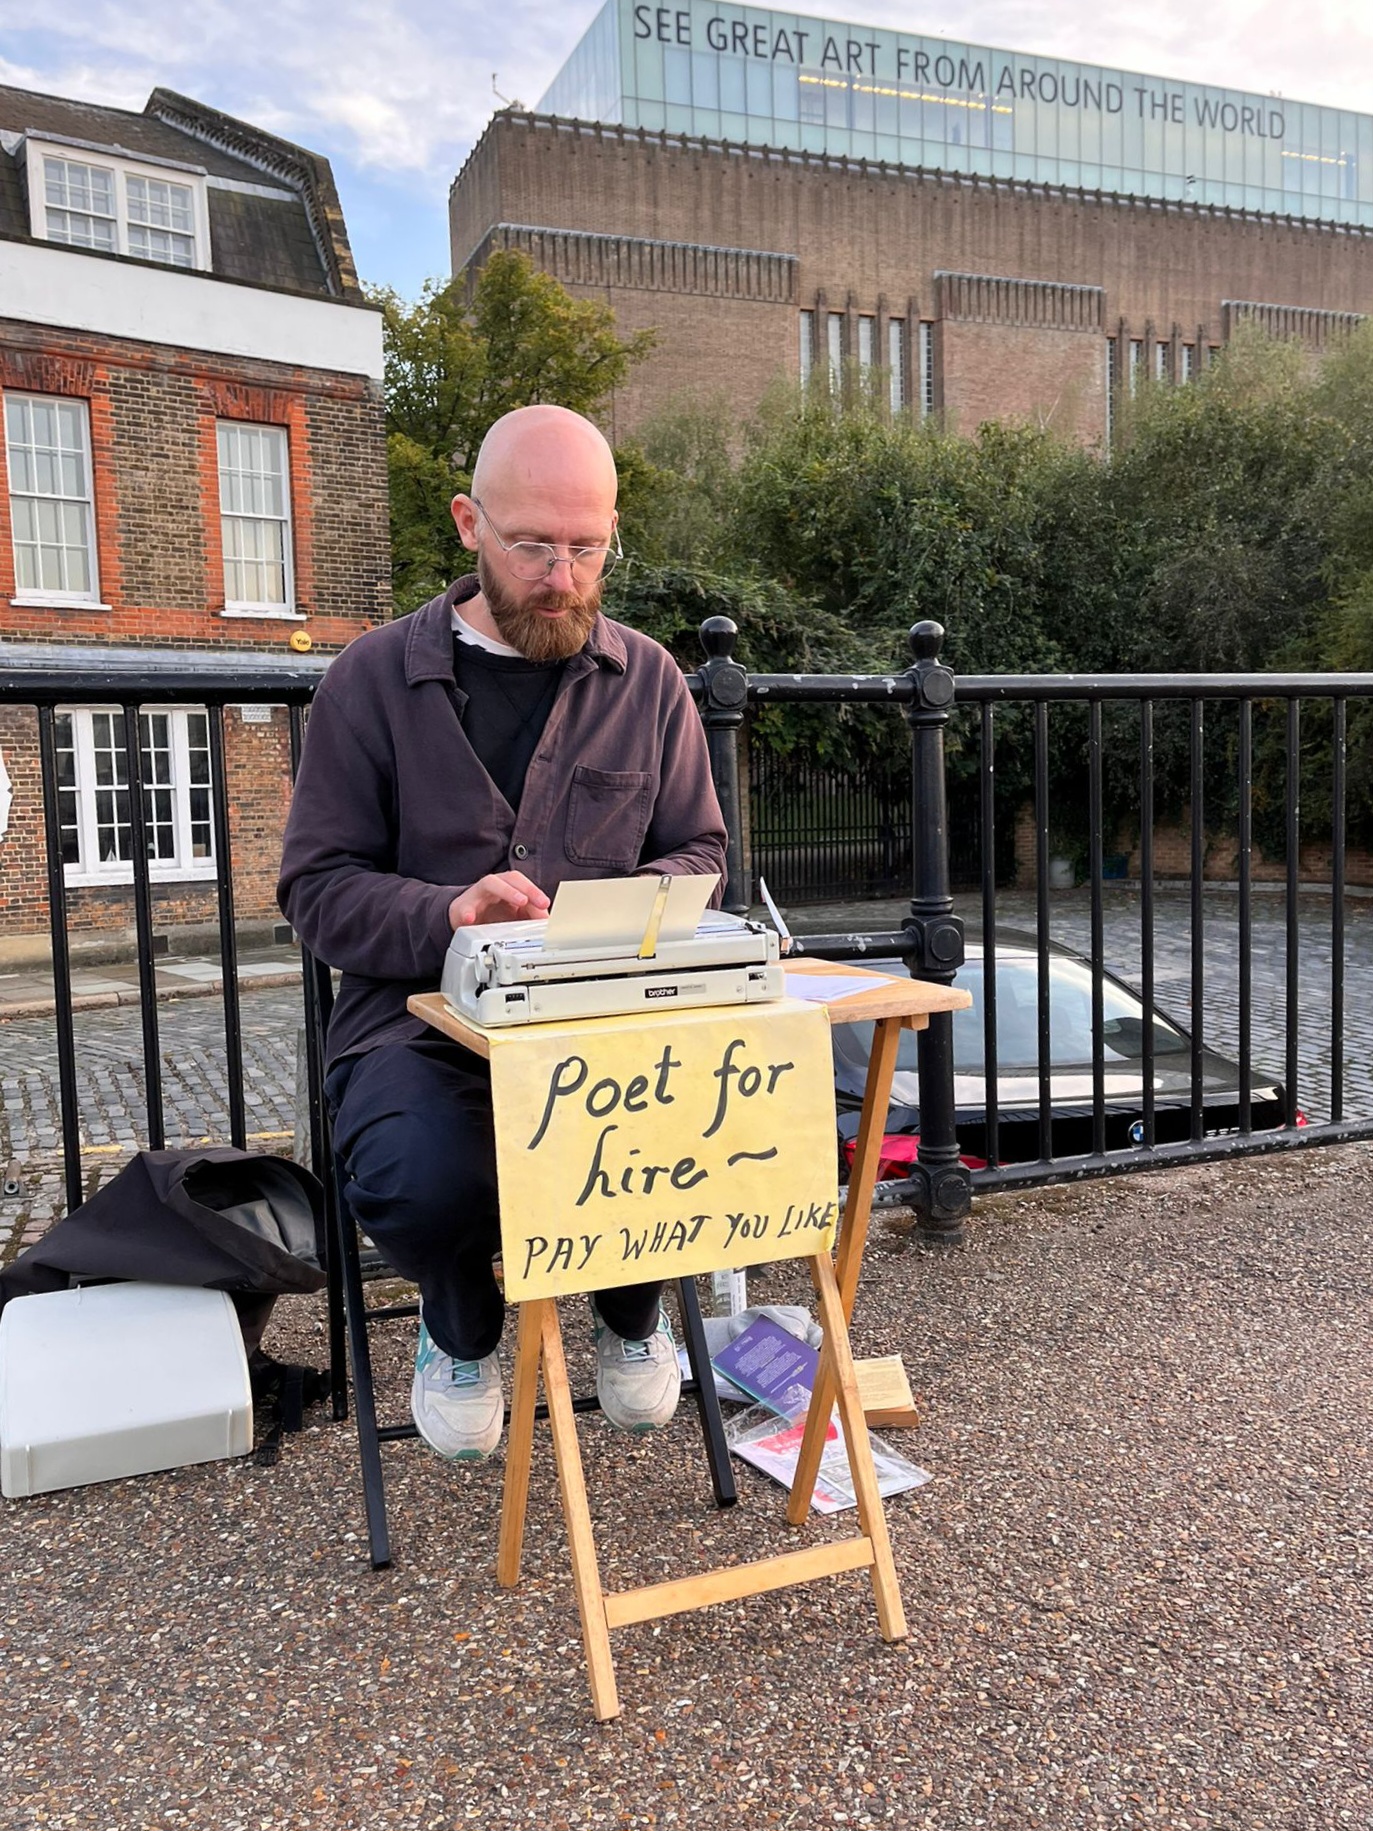 SEE GREAT ART FROM AROUND THE WORLD
Yale
brother
Poet for
hire ~
PAY WHAT YOU LIKE